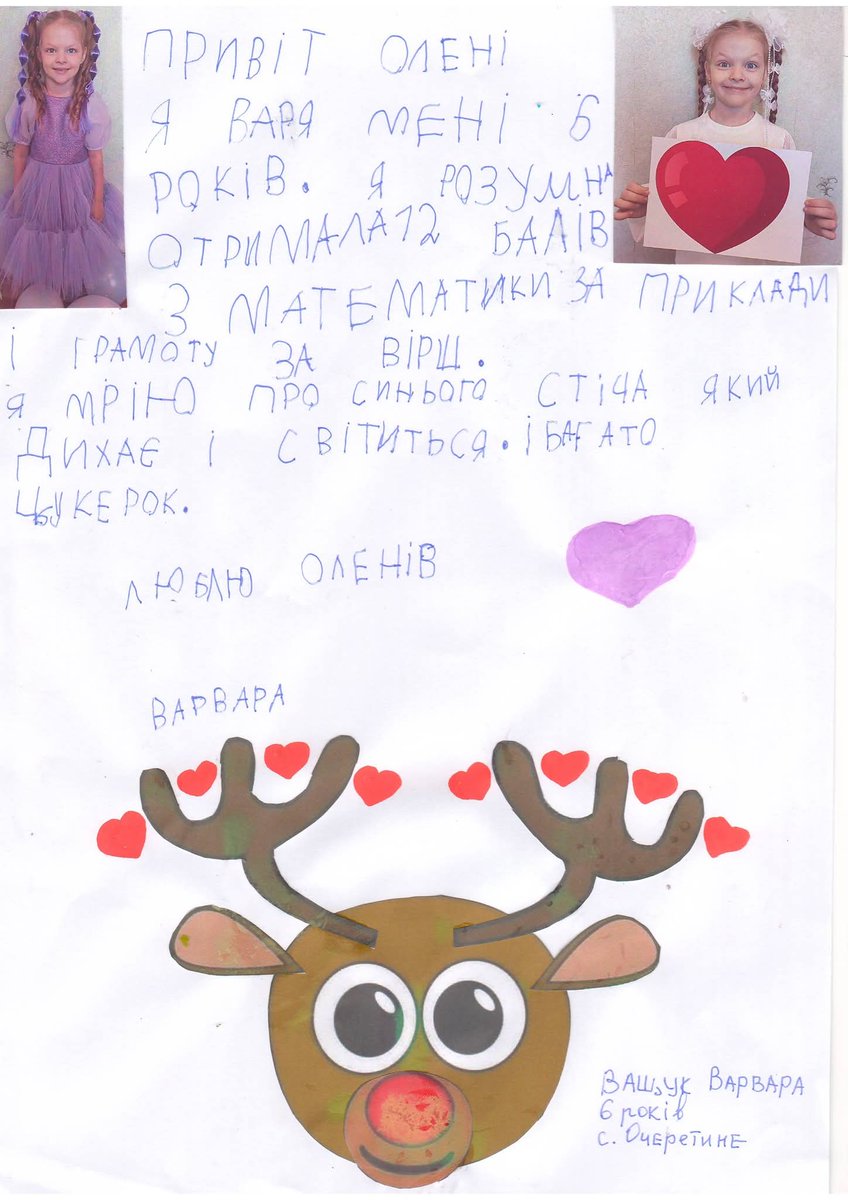 ПРИВІТ ОЛЕНІ
Я ВАРЯ МЕНІ 6
РОКІВ. Я РОЗУМНА
ОТРИМАЛА 12 БАЛІВ
З МАТЕМАТИКИ ЗА ПРИКЛАДИ
І ГРАМОТУ ЗА ВІРШ.
Я МРІЮ ПРО СИНЬОГО СТІЧА ЯКИЙ
ДИХАЄ І СВІТИТЬСЯ. І БАГАТО
ЦУКЕРОК.
ЛЮБЛЮ ОЛЕНІВ
ВАРВАРА
ВАЩУК ВАРВАРА
6 років
с. Очеретине